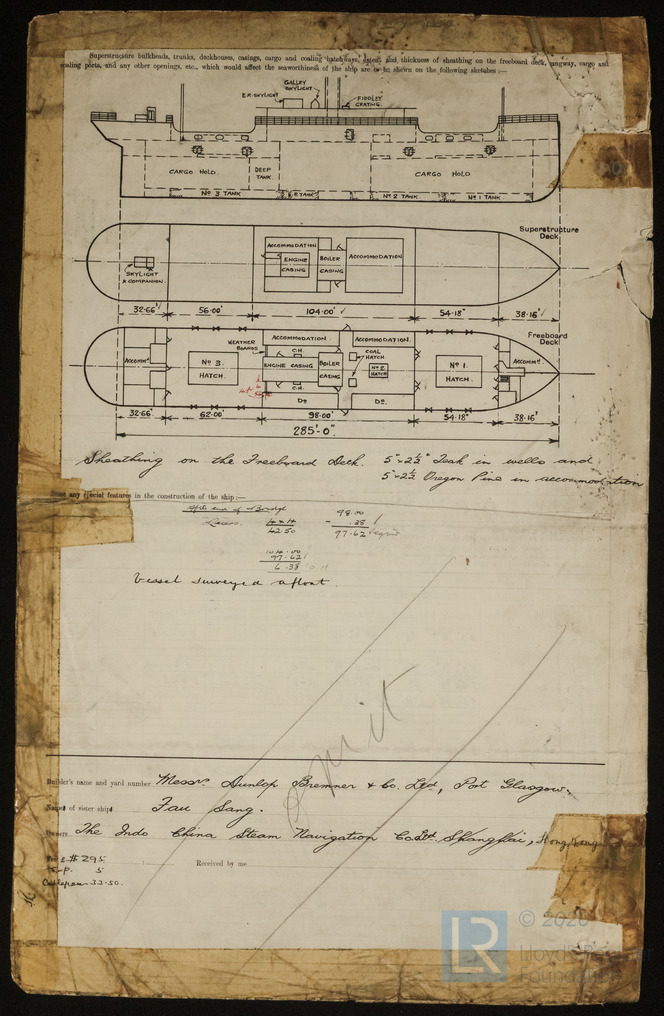 Superstructure bulkheads, trunks, deckhouses, casings, cargo and coaling hatchways, extent and thickness of sheathing on the freeboard deck, gangway, cargo and
coaling ports, and any other openings, etc., which would affect the seaworthiness of the ship are to be shewn on the following sketches :—
GALLEY SKYLIGHT
E.R. SKYLIGHT
FIDDLEY GRATING.
CARGO HOLD.
DEEP TANK
CARGO HOLD
Nº 3 TANK
Nº 2 TANK
Nº 1 TANK.
Superstructure Deck.
ACCOMMODATION
ENGINE CASING
BOILER CASING
ACCOMMODATION
SKYLIGHT & COMPANION.
32·66'
56·00'
104·00'
54·18'
38·16'
Freeboard Deck.
WEATHER BOARDS
ACCOMMODATION.
ACCOMMODATION.
C.H.
COAL HATCH
ACCOMMᴺ
Nº 3 HATCH.
ENGINE CASING
BOILER CASING
Nº 2 HATCH
Nº 1. HATCH.
ACCOMMᴺ
C.H.
Dº
Dº.
32·66'
62·00'
98·00'
54·18'
38·16'
285'-0".
Sheathing on the Freeboard Deck. 5" x 2½" Teak in wells and
5" x 2½ Oregon Pine in accommodation
State any special features in the construction of the ship :—
98.00
.38
97.62
42.50
104.00
97.62
6.38
Vessel surveyed afloat.
Omit
Builder's name and yard number Messrs. Dunlop Bremner & Co. Ltd, Port Glasgow.
Names of sister ships Fau Sang.
Owners The Indo China Steam Navigation Co Ltd. Shanghai, Hong Kong
Fee £ # 295
5
33.50.
Received by me
LR © 2020
Lloyd's Register
Foundation